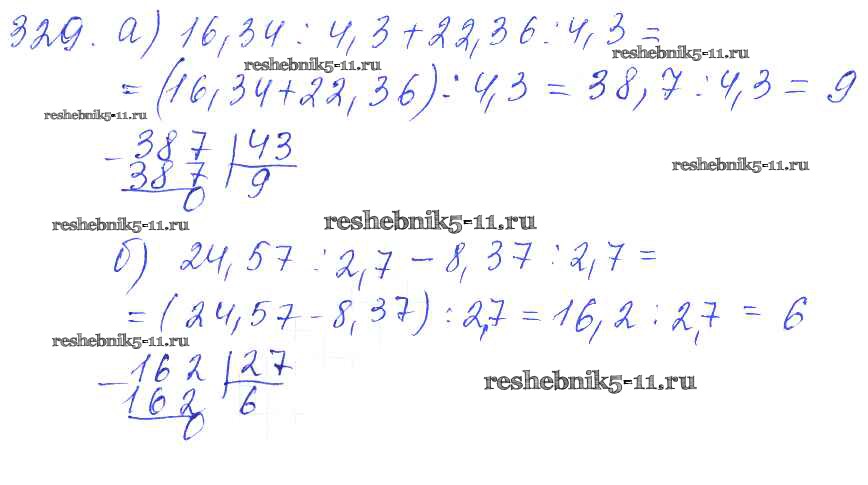 329. а) 16,34 : 4,3 + 22,36 : 4,3 =
reshebnik5-11.ru reshebnik5-11.ru
= (16,34 + 22,36) : 4,3 = 38,7 : 4,3 = 9
reshebnik5-11.ru
- 387 | 43
387 | 9
0
reshebnik5-11.ru
reshebnik5-11.ru reshebnik5-11.ru
б) 24,57 : 2,7 - 8,37 : 2,7 =
= (24,57 - 8,37) : 2,7 = 16,2 : 2,7 = 6
reshebnik5-11.ru
- 162 | 27
162 | 6
0
reshebnik5-11.ru